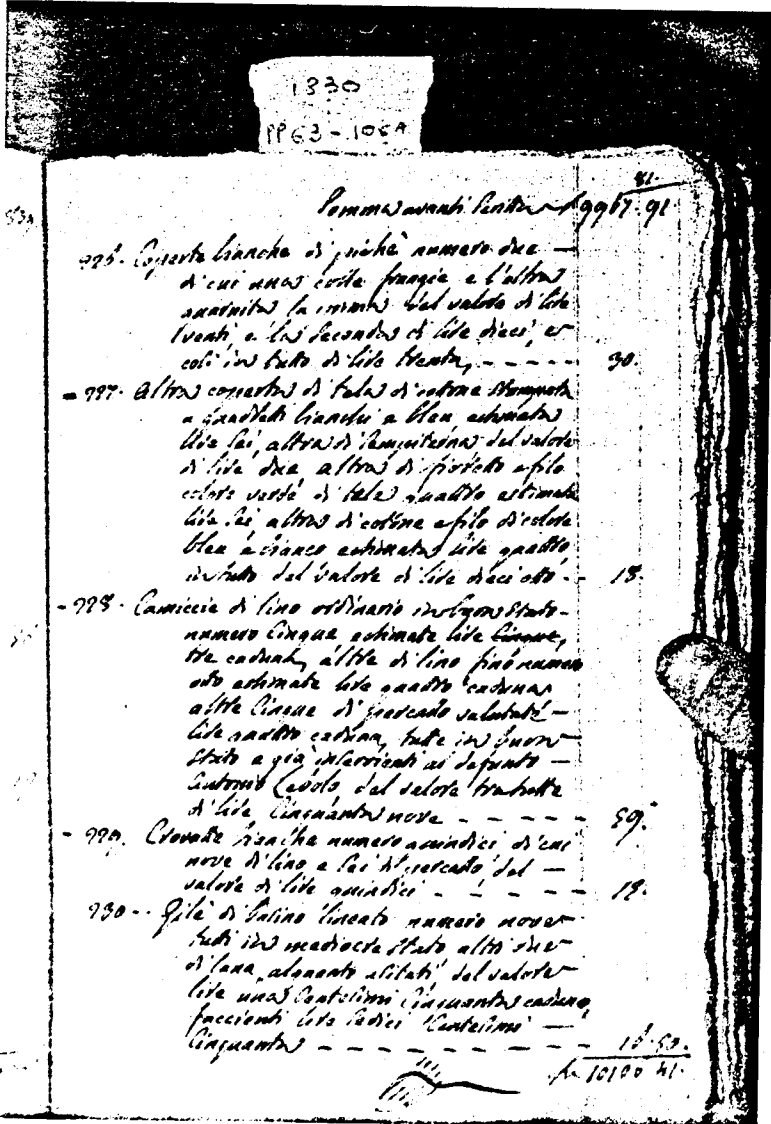 1330
PP63-106A
81.
Somma avanti scritta £ 9967.91
926. Coperte bianche di pichè numero due —
di cui una con le frangie e l'altra
la prima del valore di lire
venti, e la seconda di lire dieci, e
così in tutto di lire trenta, - - - - - 30.
- 927. Altra coperta di tela di cotone stampata
a quadletti bianchi a bleu estimata
lire sei, altra di sempiterna del valore
di lire due altra di e filo
colore verde di tele quattro estimata
lire sei altra di cotone e filo di colore
bleu e bianco estimata lire quattro
in tutto del valore di lire dieci otto - - 18.
- 928. Camiccie di lino ordinario in buon stato -
numero cinque estimate lire cinque,
tre caduna, altre di lino fino numero
otto estimate lire quattro caduna
altre cinque di percado valutate —
lire quattro caduna, tutte in buon
stato e già inservienti al defunto —
Antonio del valore tra tutte
di lire cinquanta nove - - - - - 59.
- 929. Crovatte bianche numero quindici di cui
nove di lino e sei di percado del —
valore di lire quindici - - - - - 15.
930 - - Gilè di satino lineato numero nove
tutti in mediocre stato altri due
di lana, del valore
lire una centesimi cinquanta caduno,
faccienti lire sedici centesimi —
cinquanta - - - - - - - - 16.50.
£ 10100 41.